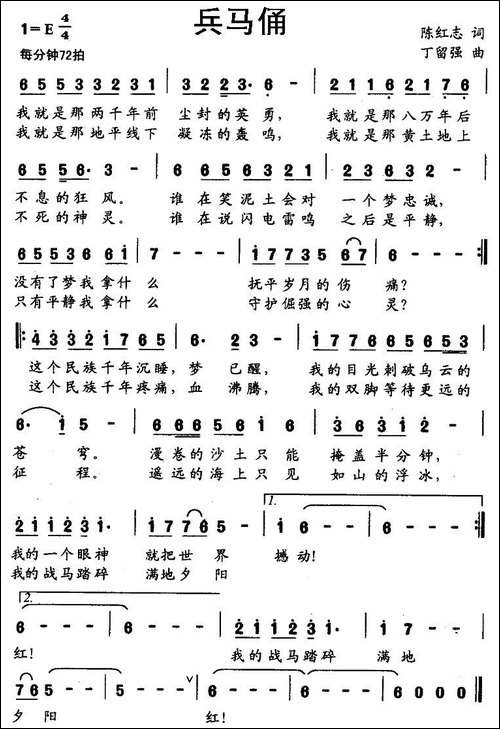 兵马俑
1=E 4/4
每分钟72拍
陈红志 词
丁留强 曲
6 5 5 3 3 2 3 1 3 2 2 3· 3 2 1 1 6 2 1 7 6
我就是那两千年前 尘封的英勇, 我就是那八万年后
我就是那地平线下 凝冻的轰鸣, 我就是那黄土地上
6 5 5 6· 3 - 6 5 6 5 1 6 3 2 2 3 6 3 2 -
不息的狂风。 谁在笑泥土会对 一个梦忠诚,
不死的神灵。 谁在说闪电雷鸣 之后是平静,
6 5 5 3 6 6 6 1 7 - - - 1 7 7 3 5 6 7 6 - - -
没有了梦我拿什么 抚平岁月的伤 痛?
只有平静我拿什么 守护倔强的心 灵?
4 3 3 2 1 7 6 5 6· 3 2 - 1 7 7 6 6 5 6 5 5
这个民族千年沉睡, 梦 已醒, 我的目光刺破乌云的
这个民族千年疼痛, 血 沸腾, 我的双脚等待更远的
6· 1 5 - 6 6 6 5 1 6 5 6 3 6 3 1 2 -
苍 穹。 漫卷的沙土只能 掩盖半分钟,
征 程。 遥远的海上只见 如山的浮冰,
1.
2 1 1 2 3 1· 1 7 7 7 6 5 - 1 6 - - 6 - - -
我的一个眼神 就把世界 撼动!
我的战马踏碎 满地夕阳
2.
6 - - - 6 - - - 2 1 1 2 3 1· 1 7 7
红! 我的战马踏碎 满地
7 6 5 - - 5 - - - 6 - - - 6 - - - 6 0 0 0
夕阳 红!